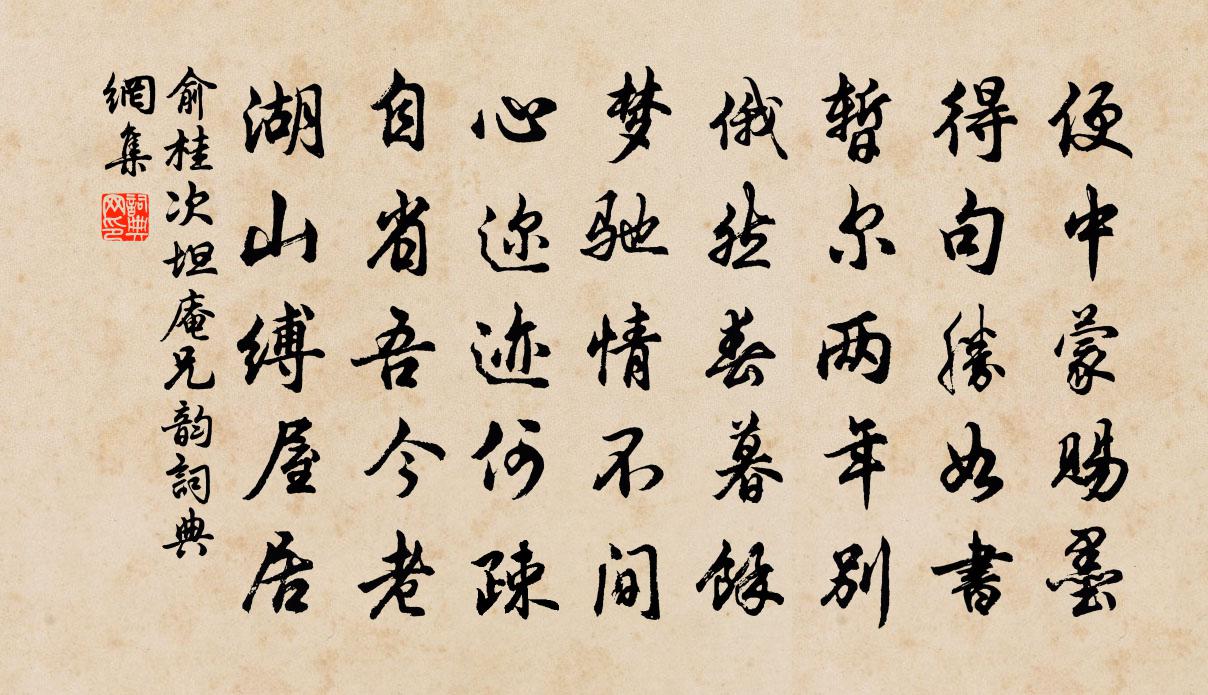 便中蒙赐墨
得句胜如书
暂尔两年别
俄然春暮馀
梦驰情不间
心迩迹何疎
自省吾今老
湖山缚屋居
俞桂次坦庵兄韵詞典
網集
詞典
网印